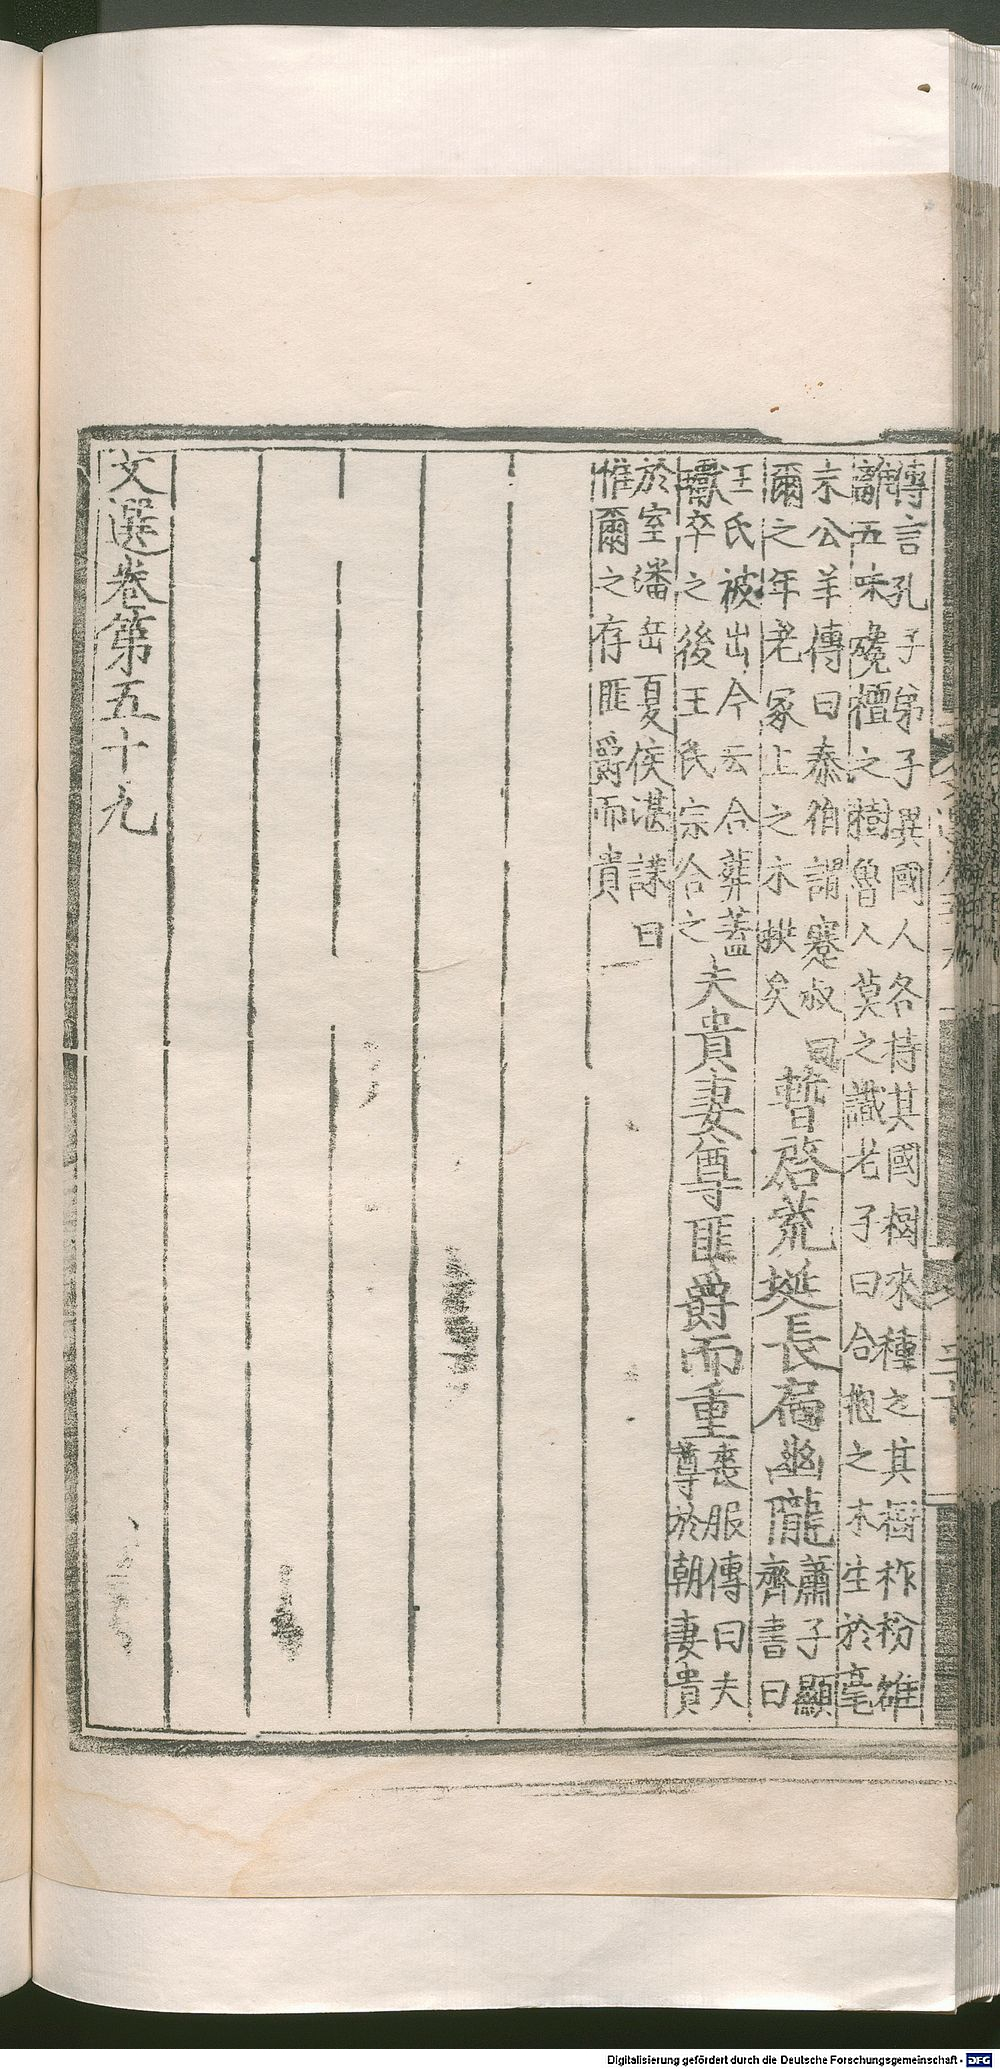 傳言孔子弟子異國人各持其國樹來種之其樹柞枌雒
離五味欃檀之樹魯人莫之識老子曰合抱之木生於毫
末公羊傳曰秦伯謂蹇叔曰
爾之年老冢上之木拱矣
暫啓荒埏長扃幽隴
蕭子顯
齊書曰
王氏被出今云合葬蓋
瓛卒之後王氏宗合之
夫貴妻尊匪爵而重
喪服傳曰夫
尊於朝妻貴
於室潘岳夏侯湛誄曰
惟爾之存匪爵而貴
文選卷第五十九
Digitalisierung gefördert durch die Deutsche Forschungsgemeinschaft - DFG